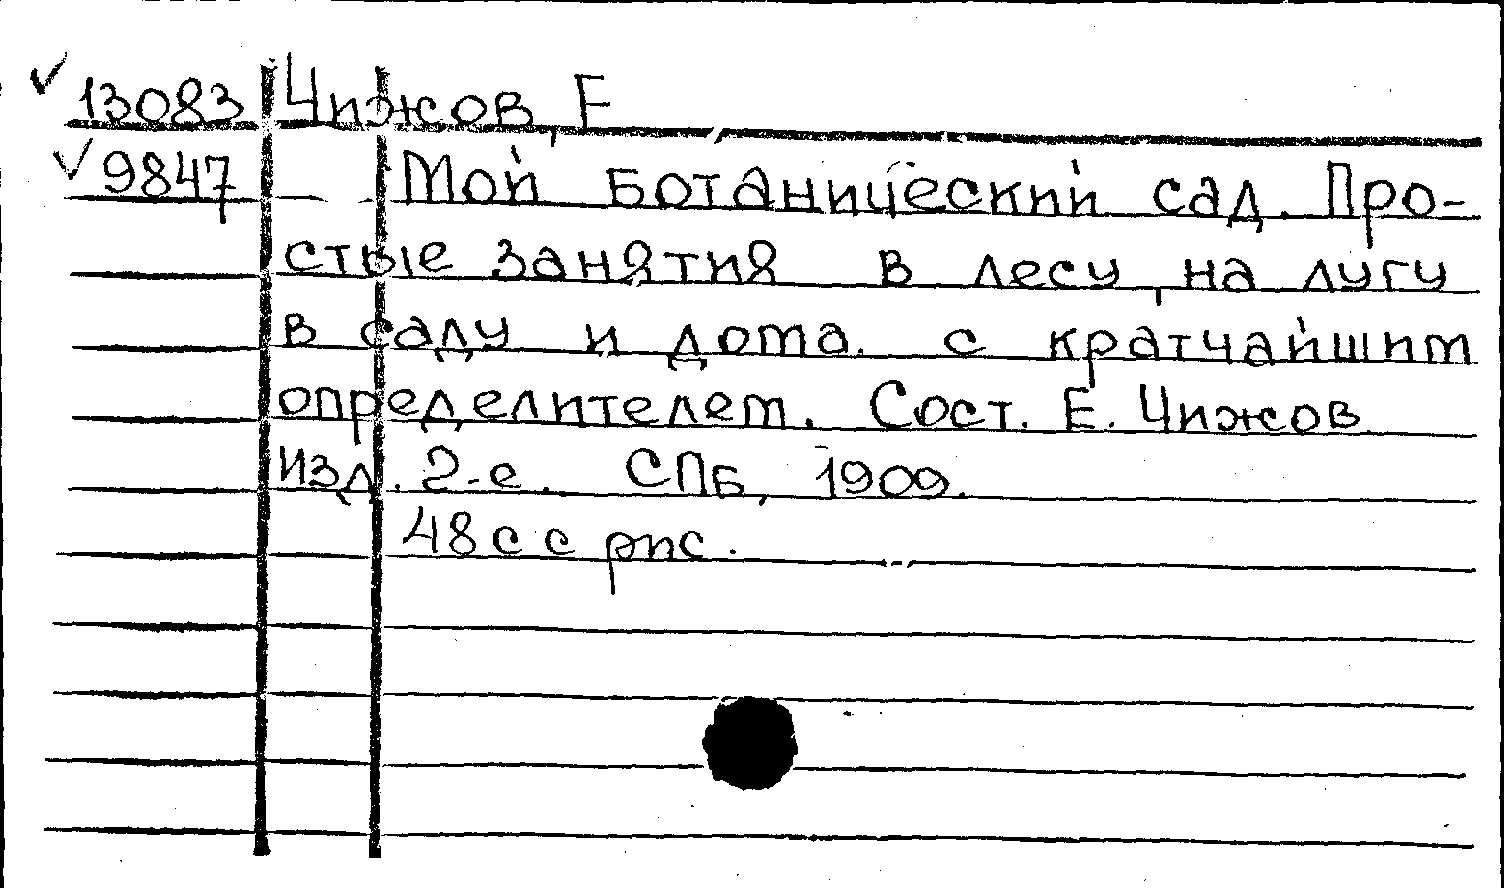 ✓ 13083 Чижов, Е
✓ 9847 Мой Ботанический сад. Про-
стые занятия в лесу, на лугу
в саду и дома. с кратчайшим
определителем. Сост. Е. Чижов
Изд. 2-е. СПБ, 1909.
48 с с рис.